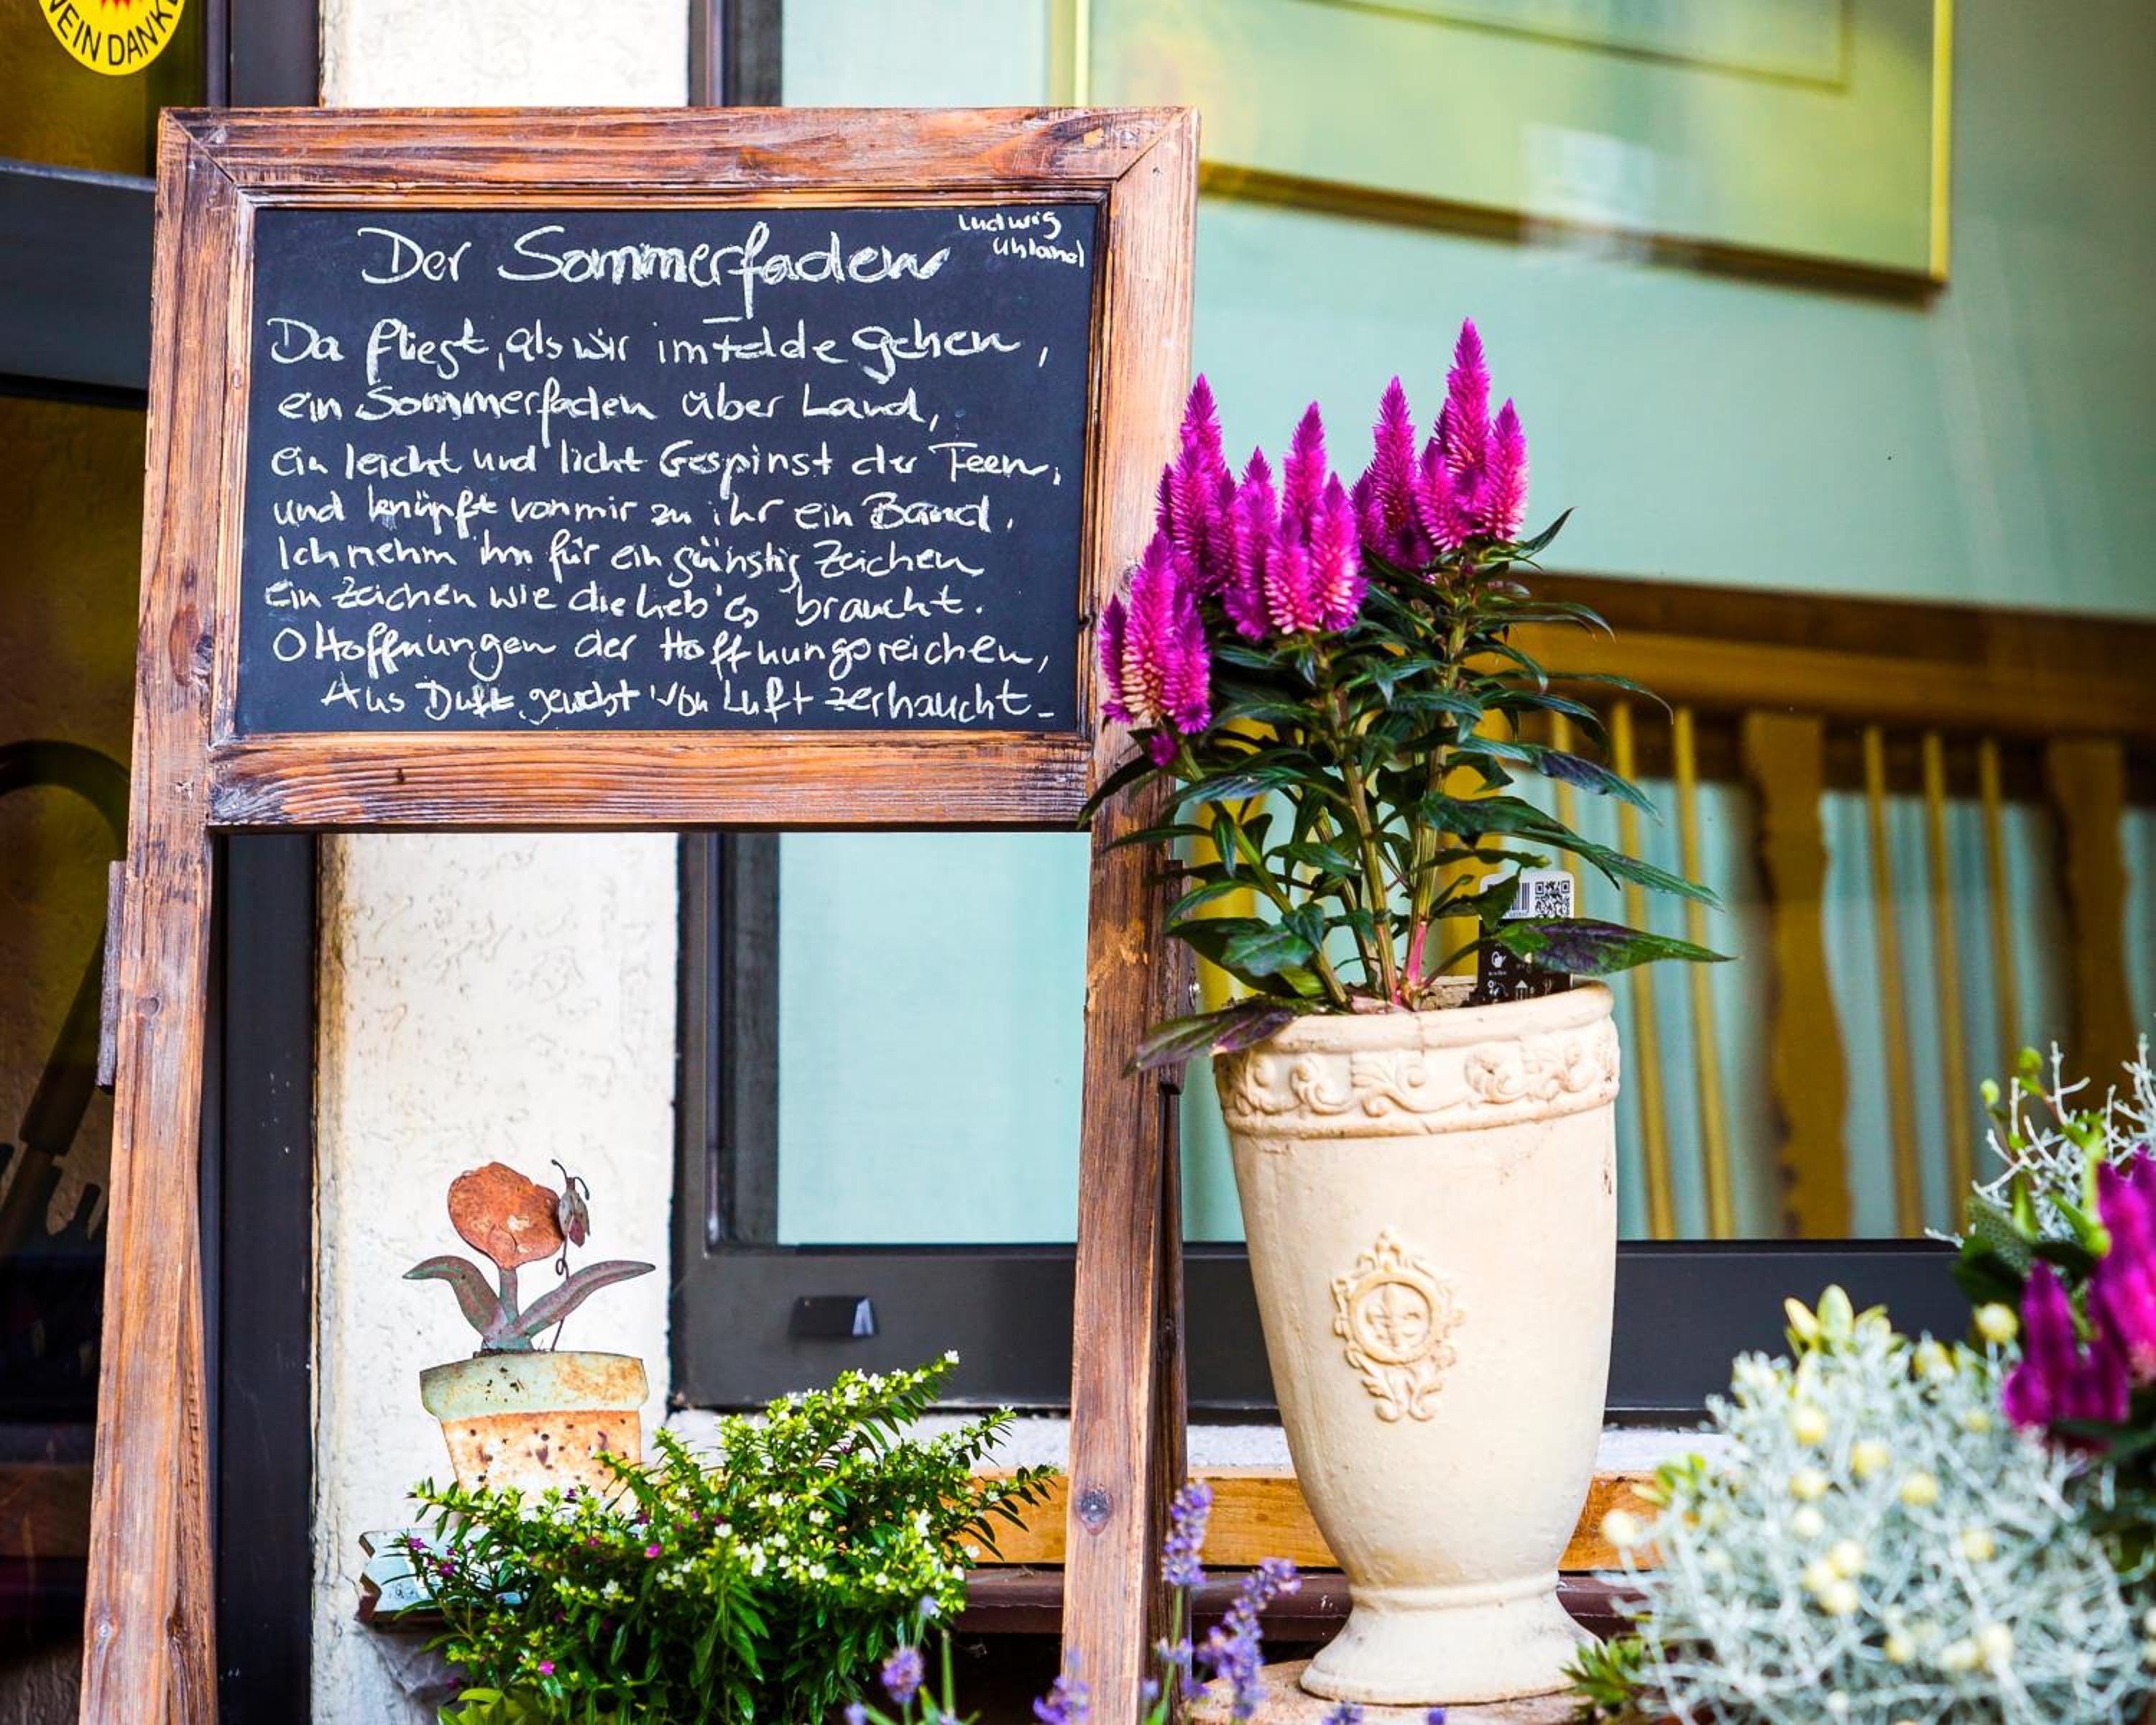 NEIN DANKE
Der Sommerfaden
Ludwig
Uhland
Da fliegt, als wir im Felde gehen,
ein Sommerfaden über Land,
ein leicht und licht Gespinst der Feen,
und knüpft von mir zu ihr ein Band.
Ich nehm ihn für ein günstig Zeichen
Ein Zeichen wie die Lieb'es braucht.
O Hoffnungen der Hoffnungsreichen,
Aus Duft gewebt von Luft zerhaucht_